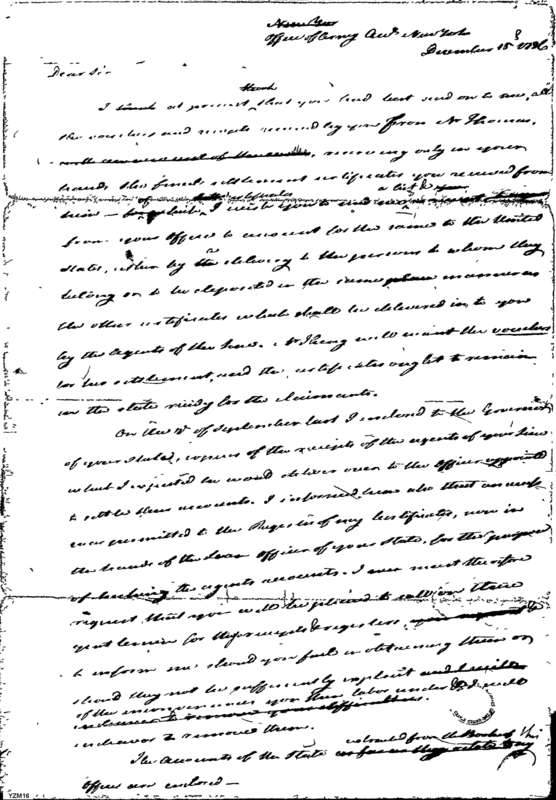 Office of Army Acct New York
December 15 1786
Dear Sir
think
I at present that you had best send on to me, all
the vouchers and receipts received by you from Mr Thomas,
receiving only in your
hands the final settlement certificates you received from
him I wish you to send
from your office to account for the same to the United
States, either by the delivery to the persons to whom they
belong or to be deposited in the same manner as
the other certificates which shall be delivered in, to you
by the agents of the line. will want the vouchers
for his settlement, and the certificates ought to remain
in the state ready for the claimants.
On the of September last I enclosed to the Governor
of your State, copies of the receipts of the agents of your line
which I expected he would deliver over to the officer appointed
to settle their accounts. I informed him also that an
was permitted to the Register of my Certificates, now in
the hands of the Loan Officer of your State, for the purpose
of checking the agents accounts. I must therefore
request that you will be pleased to call on these
gentlemen for the receipts & registers &
to inform me should you fail in obtaining them or
should they not be sufficiently explicit
of the you labor under & I will
endeavor to remove them.
The accounts of the State extracted from the Books of this
office are enclosed—
YZM16